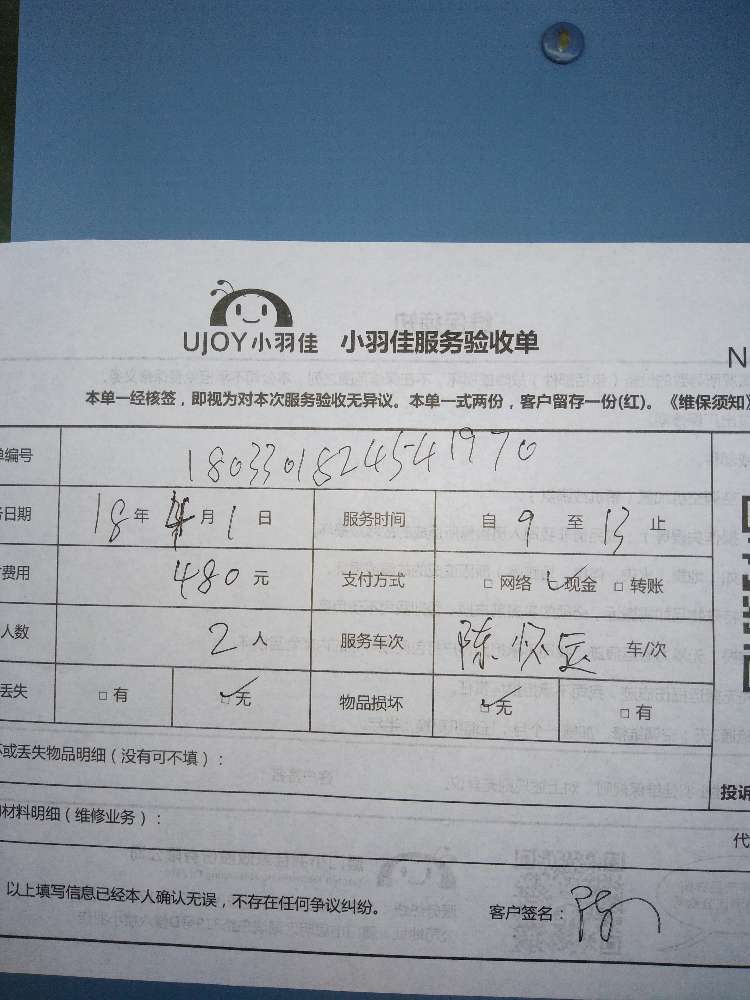 UJOY小羽佳 小羽佳服务验收单
N
本单一经核签，即视为对本次服务验收无异议。本单一式两份，客户留存一份(红)。《维保须知》
单编号 1803301824541970
务日期 18年4月1日 服务时间 自9至13止
费用 480元 支付方式 □网络 ✓现金 □转账
人数 2人 服务车次 陈怀 车/次
丢失 □有 ✓无 物品损坏 ✓无 □有
坏或丢失物品明细（没有可不填）：
投诉
材料明细（维修业务）：
代
以上填写信息已经本人确认无误，不存在任何争议纠纷。 客户签名：